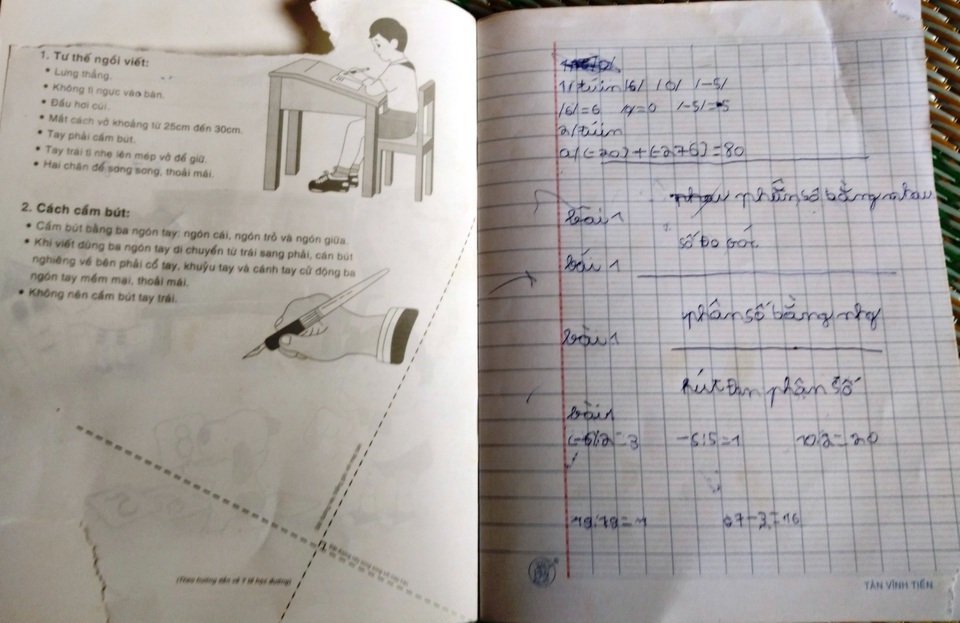 1. Tư thế ngồi viết:
• Lưng thẳng.
• Không tì ngực vào bàn.
• Đầu hơi cúi.
• Mắt cách vở khoảng từ 25cm đến 30cm.
• Tay phải cầm bút.
• Tay trái tì nhẹ lên mép vở để giữ.
• Hai chân để song song, thoải mái.
2. Cách cầm bút:
• Cầm bút bằng ba ngón tay: ngón cái, ngón trỏ và ngón giữa.
• Khi viết dùng ba ngón tay di chuyển từ trái sang phải, cán bút
nghiêng về bên phải cổ tay, khuỷu tay và cánh tay cử động ba
ngón tay mềm mại, thoải mái.
• Không nên cầm bút tay trái.
(Theo hướng dẫn về Y tế học đường)
1/ tính /6/ /0/ /-5/
/6/=6 =0 /-5/=5
2/ tính
a/(-20)+(-276)=80
phân số bằng nhau
bài 1
số đo góc
bài 1
phân số bằng
bài 1
rút phận số
bài 1
(-6):2=3 -5:5=1 10.2=20
19:19=1 -3=16
TÂN VĨNH TIẾN